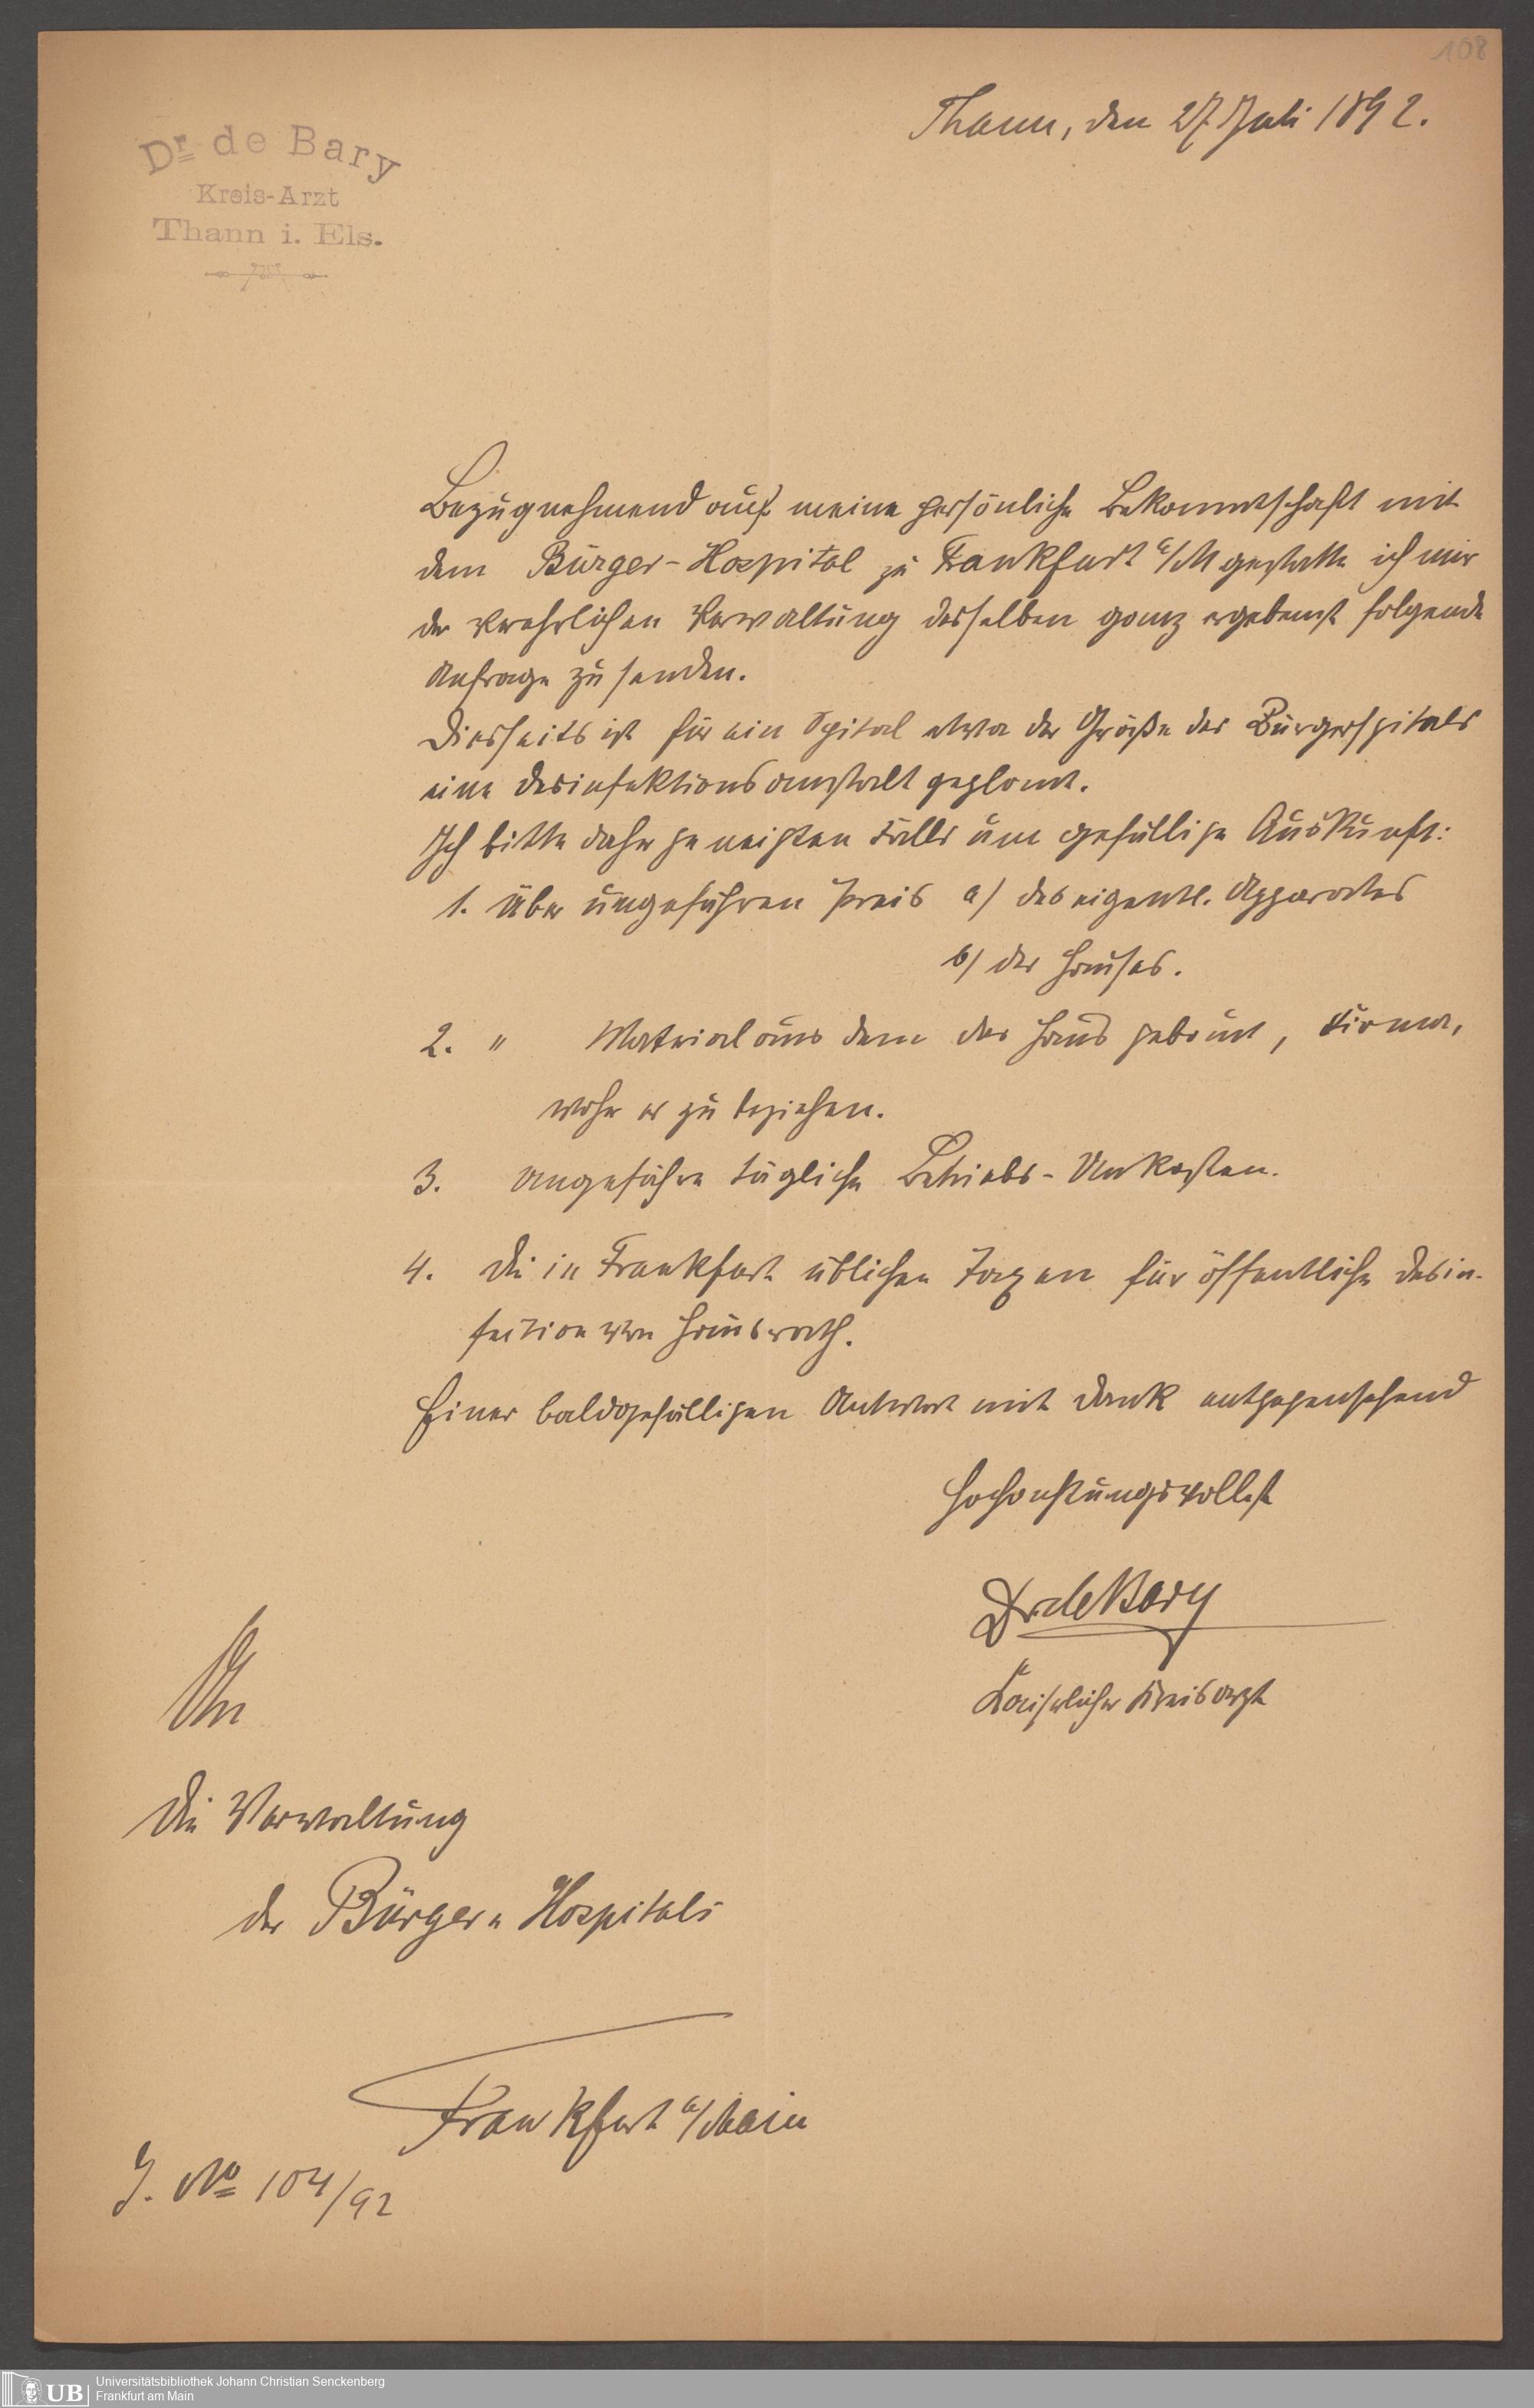 108
Thann, den 27 Juli 1892.
Dr. de Bary
Kreis-Arzt
Thann i. Els.
Bezugnehmend auf meine persönliche Bekanntschaft mit
dem Bürger-Hospital zu Frankfurt a/M gestatte ich mir
der verehrlichen Verwaltung desselben ganz ergebenst folgende
Anfrage zu senden.
Diesseits ist für ein Spital etwa der Größe des Bürgerspitals
eine Desinfektionsanstalt geplant.
Ich bitte daher geneigten Falls um gefällige Auskunft:
1. Über ungefähren Preis a/ des eigentl. Apparates
b/ des Hauses.
2. " Material aus dem das Haus gebaut, Firma,
woher es zu beziehen.
3. Ungefähre tägliche Betriebs-Unkosten.
4. Die in Frankfurt üblichen Taxen für öffentliche Desin-
fection von Hausrath.
Einer baldgefälligen Antwort mit Dank entgegensehend
Hochachtungsvollst
Dr. de Bary
Kaiserlicher Kreisarzt
An
die Verwaltung
des Bürger-Hospitals
Frankfurt a/Main
J. No 104/92
UB
Universitätsbibliothek Johann Christian Senckenberg
Frankfurt am Main